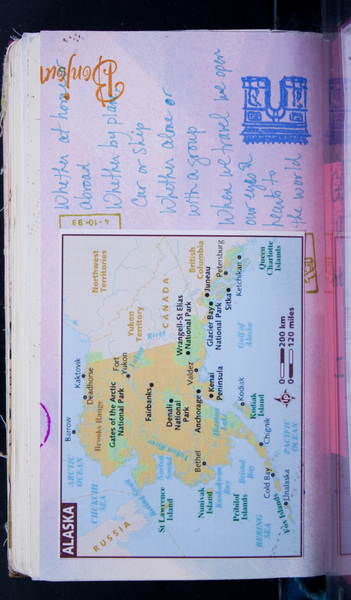 Bonjour
Whether at home or
abroad
Whether by plane
Car or Ship
Whether alone or
with a group
When we travel we open
our eyes &
hearts to
the world
4-10-99
ALASKA
RUSSIA
ARCTIC
OCEAN
CHUKCHI
SEA
Bering Strait
Barrow
Kaktovik
Deadhorse
Brooks Range
Gates of the Arctic
National Park
Fort
Yukon
Yukon
Territory
Northwest
Territories
CANADA
British
Columbia
Fairbanks
Denali
National
Park
Yukon River
Norton
Sound
St Lawrence
Island
Nunivak
Island
Bethel
Kuskokwim
Bay
Pribilof
Islands
BERING
SEA
Bristol
Bay
Anchorage
Valdez
Wrangell-St Elias
National Park
Kenai
Peninsula
Glacier Bay
National Park
Juneau
Petersburg
Sitka
Ketchikan
Queen
Charlotte
Islands
Gulf of
Alaska
Kodiak
Kodiak
Island
Chignik
Cold Bay
Unalaska
Fox Islands
PACIFIC
OCEAN
0 200 km
0 120 miles